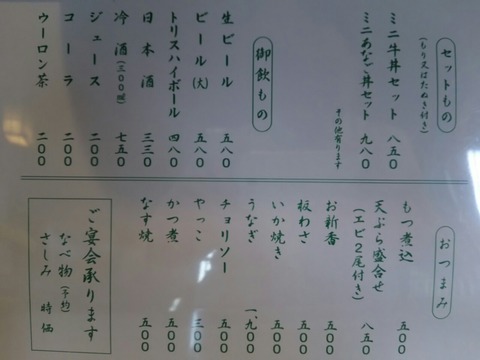 セットもの
(もり又はたぬき付き)
ミニ牛丼セット 八五〇
ミニあなご丼セット 九八〇
その他有ります
御飲もの
生ビール 五八〇
ビール(大) 五八〇
トリスハイボール 四八〇
日本酒 三三〇
冷酒(三〇〇㎖) 七五〇
ジュース 二〇〇
コーラ 二〇〇
ウーロン茶 二〇〇
おつまみ
もつ煮込 五〇〇
天ぷら盛合せ
(エビ2尾付き) 八五〇
お新香 五〇〇
板わさ 五〇〇
いか焼き 五〇〇
うなぎ 一、九〇〇
チョリソー 五〇〇
やっこ 三〇〇
かつ煮 五〇〇
なす焼 五〇〇
ご宴会承ります
なべ物(予約)
さしみ 時価